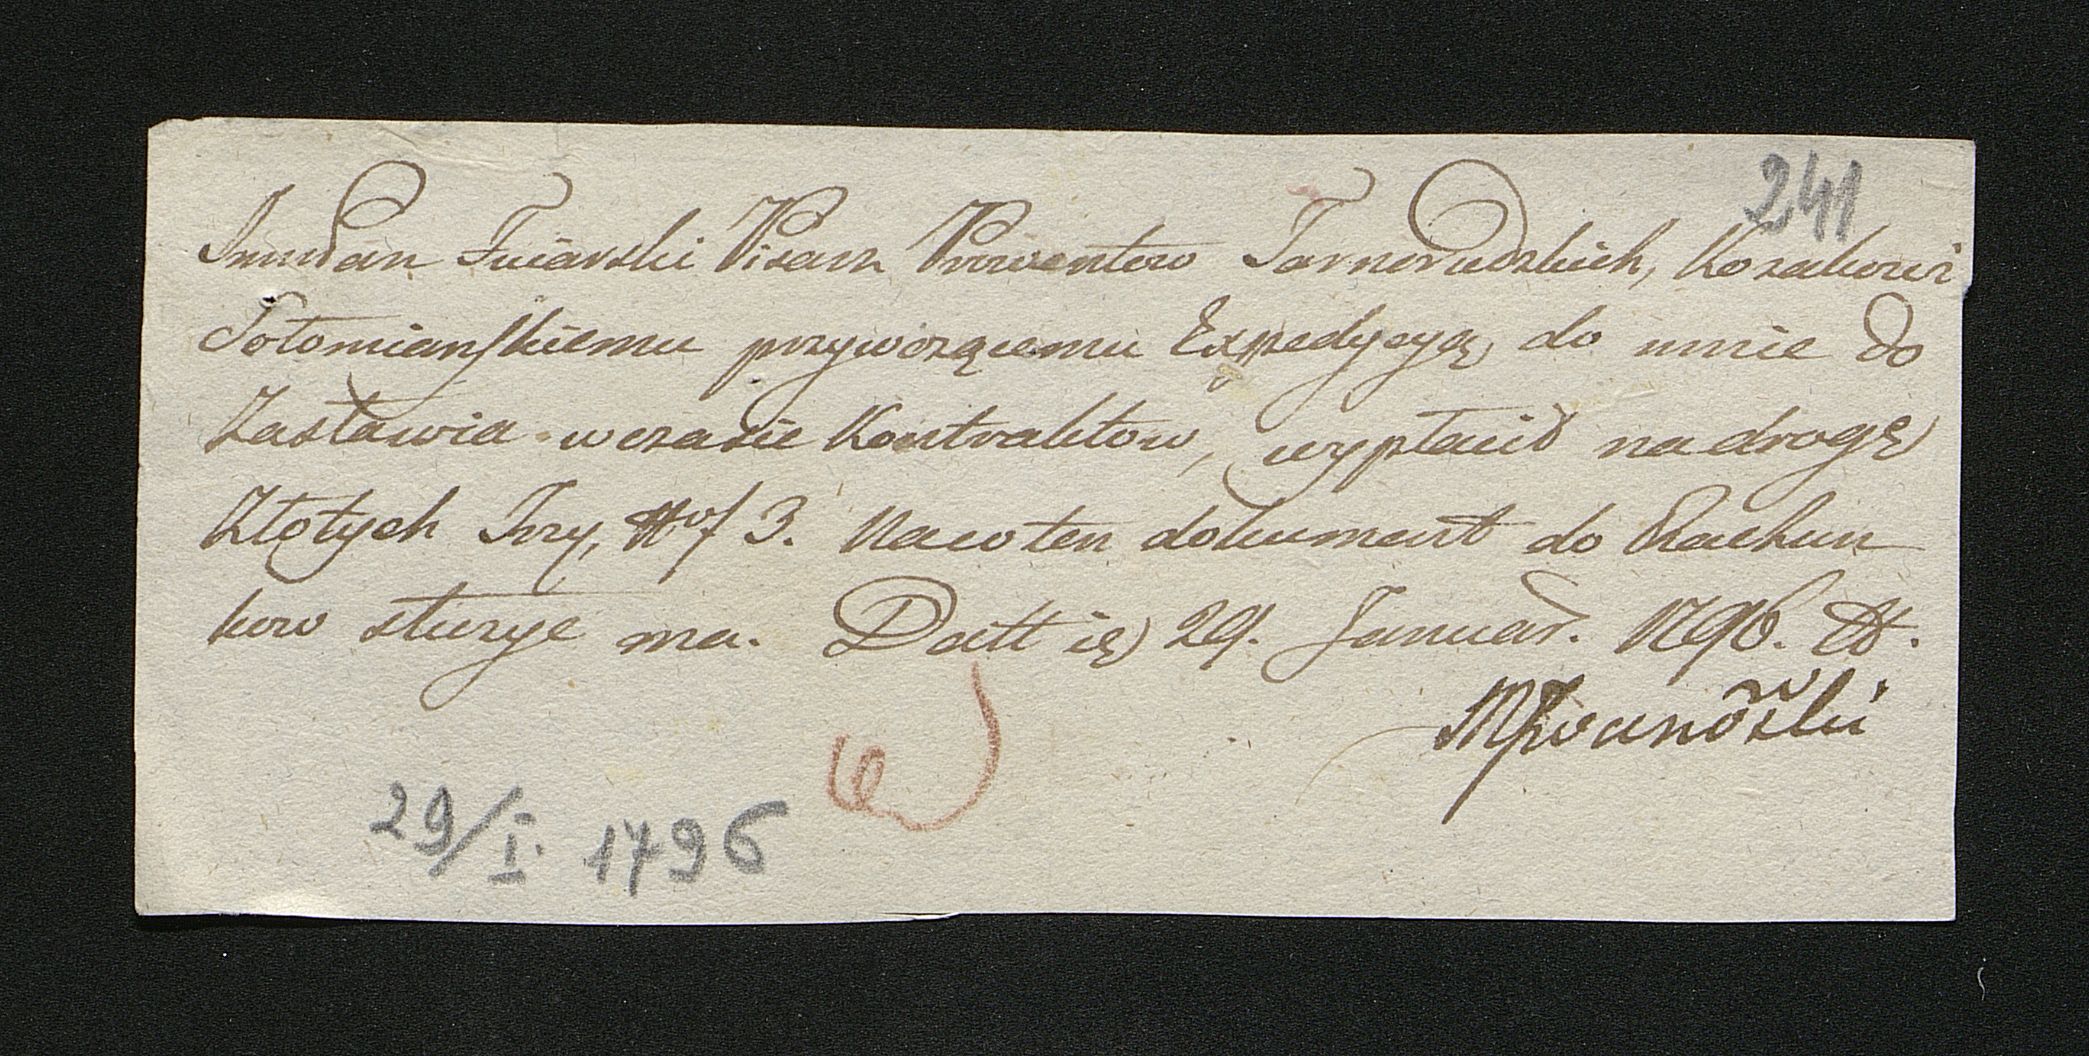 241
Jmć Pan Fuiarski Pisarz Prowentow Tarnorudzkich, Kozakowi
Sołomianskiemu przywożącemu Expedycyą do mnie do
Zasławia w czasie Kontraktow, wypłacić na drogę
Złotych Trzy, # f 3. Na co ten dokument do Rachun
kow służyć ma. Datt ię 29. Januar. 1796. R.
29/I. 1796